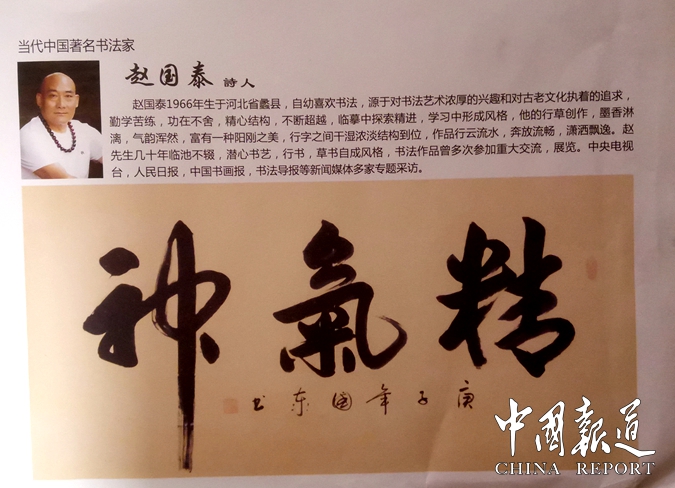 当代中国著名书法家
赵国泰 詩人
赵国泰1966年生于河北省蠡县，自幼喜欢书法，源于对书法艺术浓厚的兴趣和对古老文化执着的追求，
勤学苦练，功在不舍，精心结构，不断超越，临摹中探索精进，学习中形成风格，他的行草创作，墨香淋
漓，气韵浑然，富有一种阳刚之美，行字之间干湿浓淡结构到位，作品行云流水，奔放流畅，潇洒飘逸。赵
先生几十年临池不辍，潜心书艺，行书，草书自成风格，书法作品曾多次参加重大交流，展览。中央电视
台，人民日报，中国书画报，书法导报等新闻媒体多家专题采访。
精氣神
庚子年國泰书
中國報道
CHINA REPORT